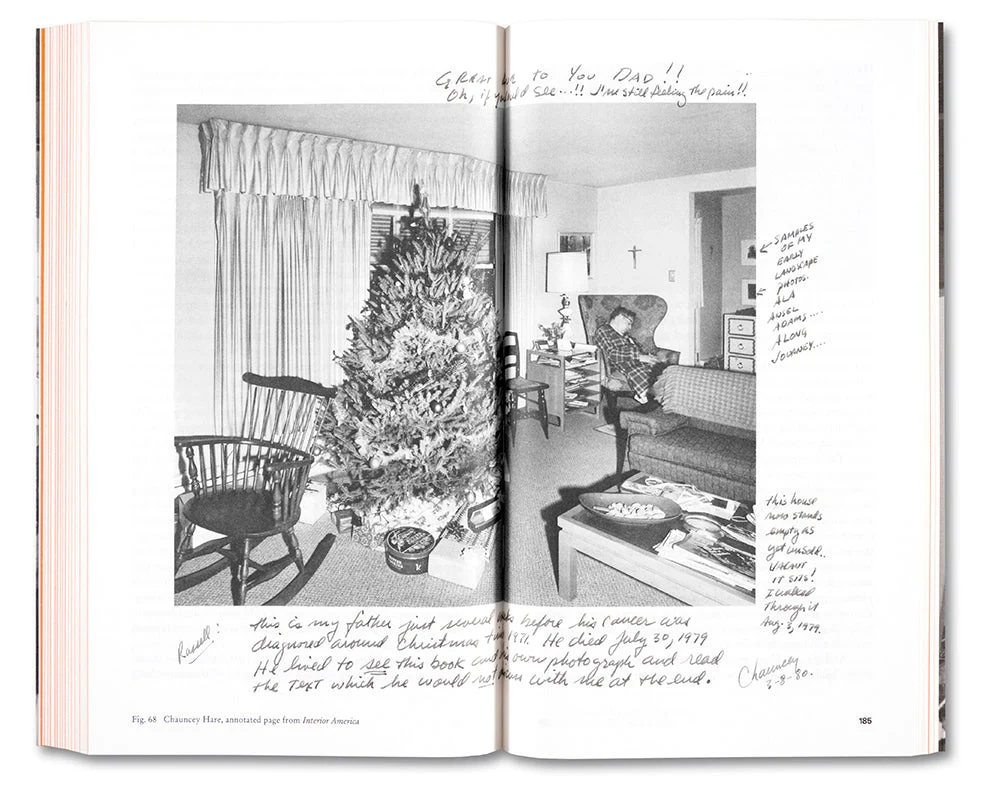 GREAT to You DAD!!
Oh, if you'd See...!! I'm still feeling the pain!!
SAMPLES
OF MY
EARLY
LANGSCAPE
PHOTOS.
ALA
ANSEL
ADAMS....
A LONG
JOURNEY....
this house
now stands
empty as
yet unsold..
VACANT
IT SITS!
I walked
Through it
Aug. 3, 1979.
Russell:
this is my father just several before his cancer was
diagnosed around Christmas 1971. He died July 30, 1979
He lived to see this book and own photograph and read
the TEXT which he would no! with me at the end.
Chauncey
3-8-80.
Fig. 68 Chauncey Hare, annotated page from Interior America
185